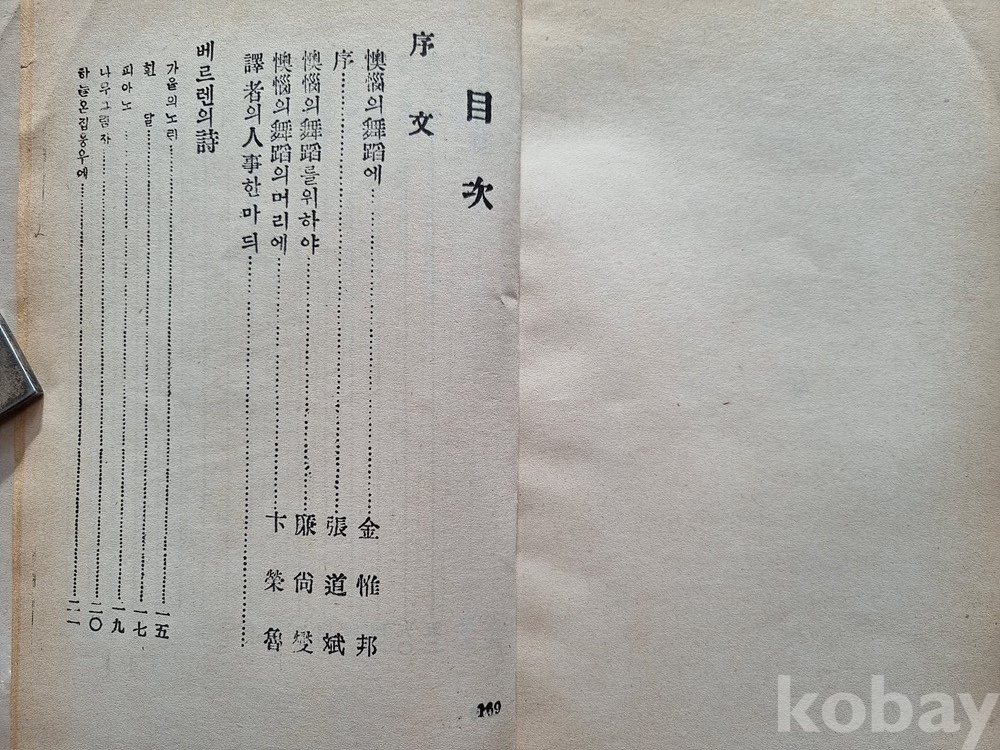 目次
序文
懊惱의舞蹈에 金惟邦
序 張道斌
懊惱의舞蹈를위하야 廉尙燮
懊惱의舞蹈의머리에 卞榮魯
譯者의人事한마듸
베르렌의詩
가을의노래 一五
흰달 一七
피아노 一九
나무그림자 二〇
하늘은집웅우에 二一
169
kobay